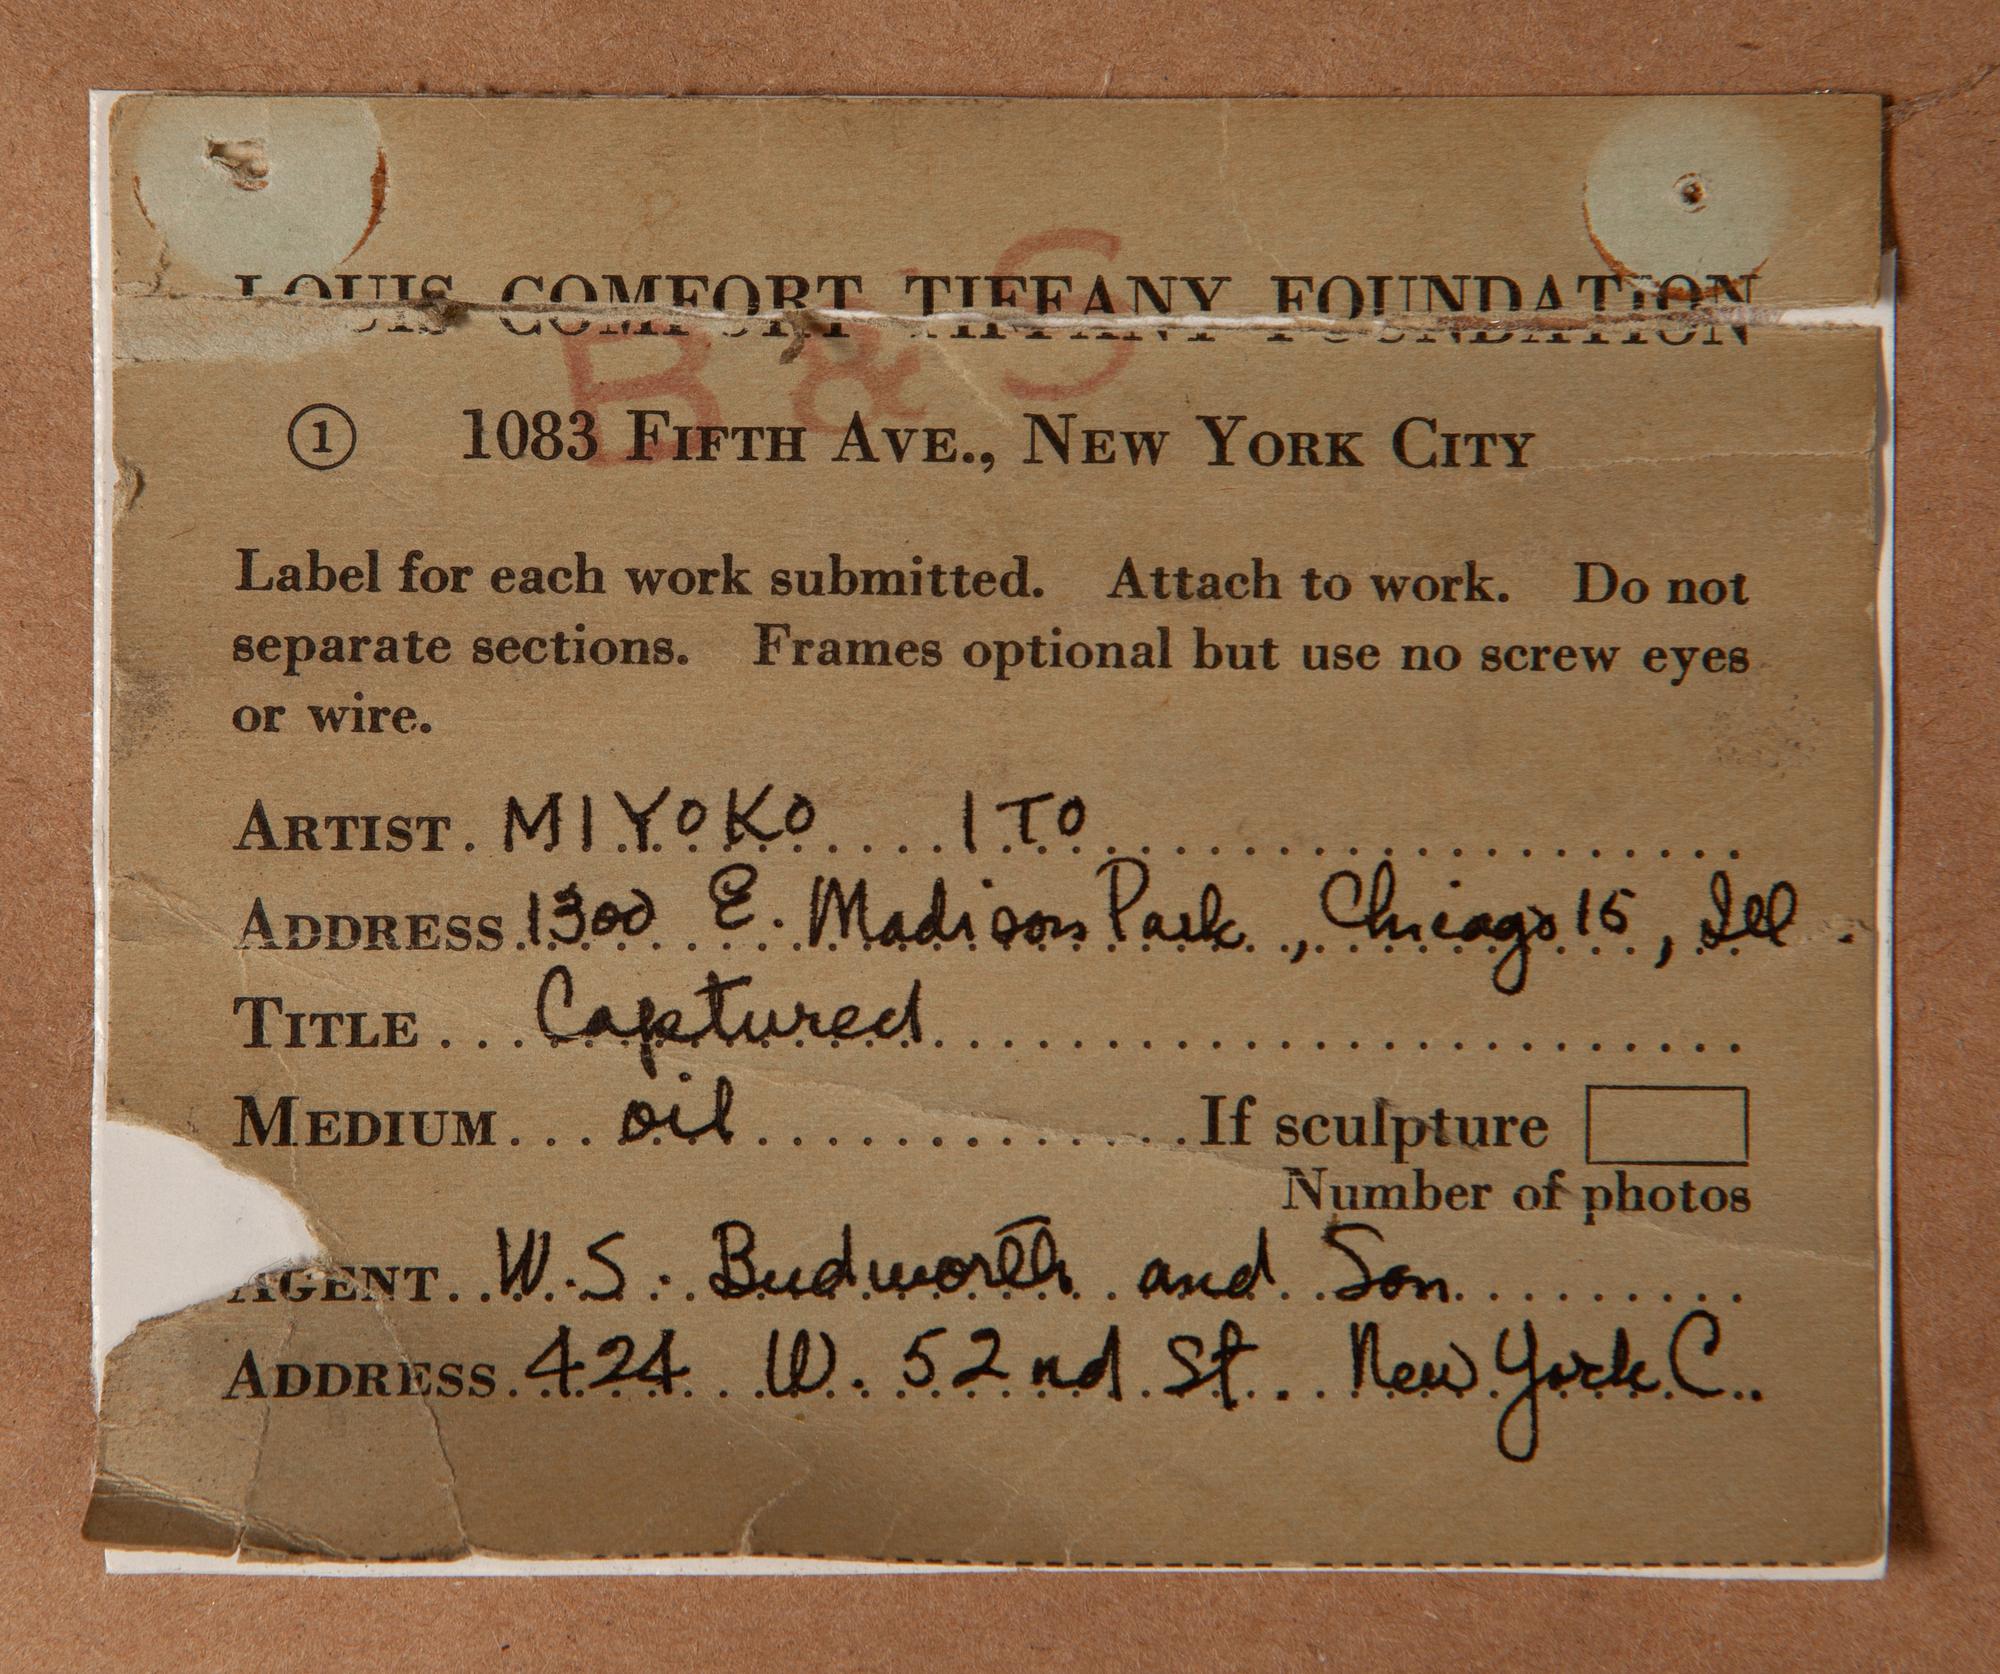 LOUIS COMFORT TIFFANY FOUNDATION
B & S
1 1083 FIFTH AVE., NEW YORK CITY
Label for each work submitted. Attach to work. Do not
separate sections. Frames optional but use no screw eyes
or wire.
ARTIST. MIYOKO ITO
ADDRESS. 1300 E. Madison Park, Chicago 15, Ill.
TITLE... Captured
MEDIUM... oil If sculpture
Number of photos
AGENT.. W.S. Budworth and Son
ADDRESS. 424 W. 52nd St. New York C.